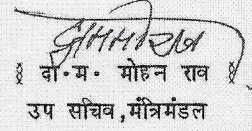 § दो॰म॰ मोहन राव §
उप सचिव,मंत्रिमंडल